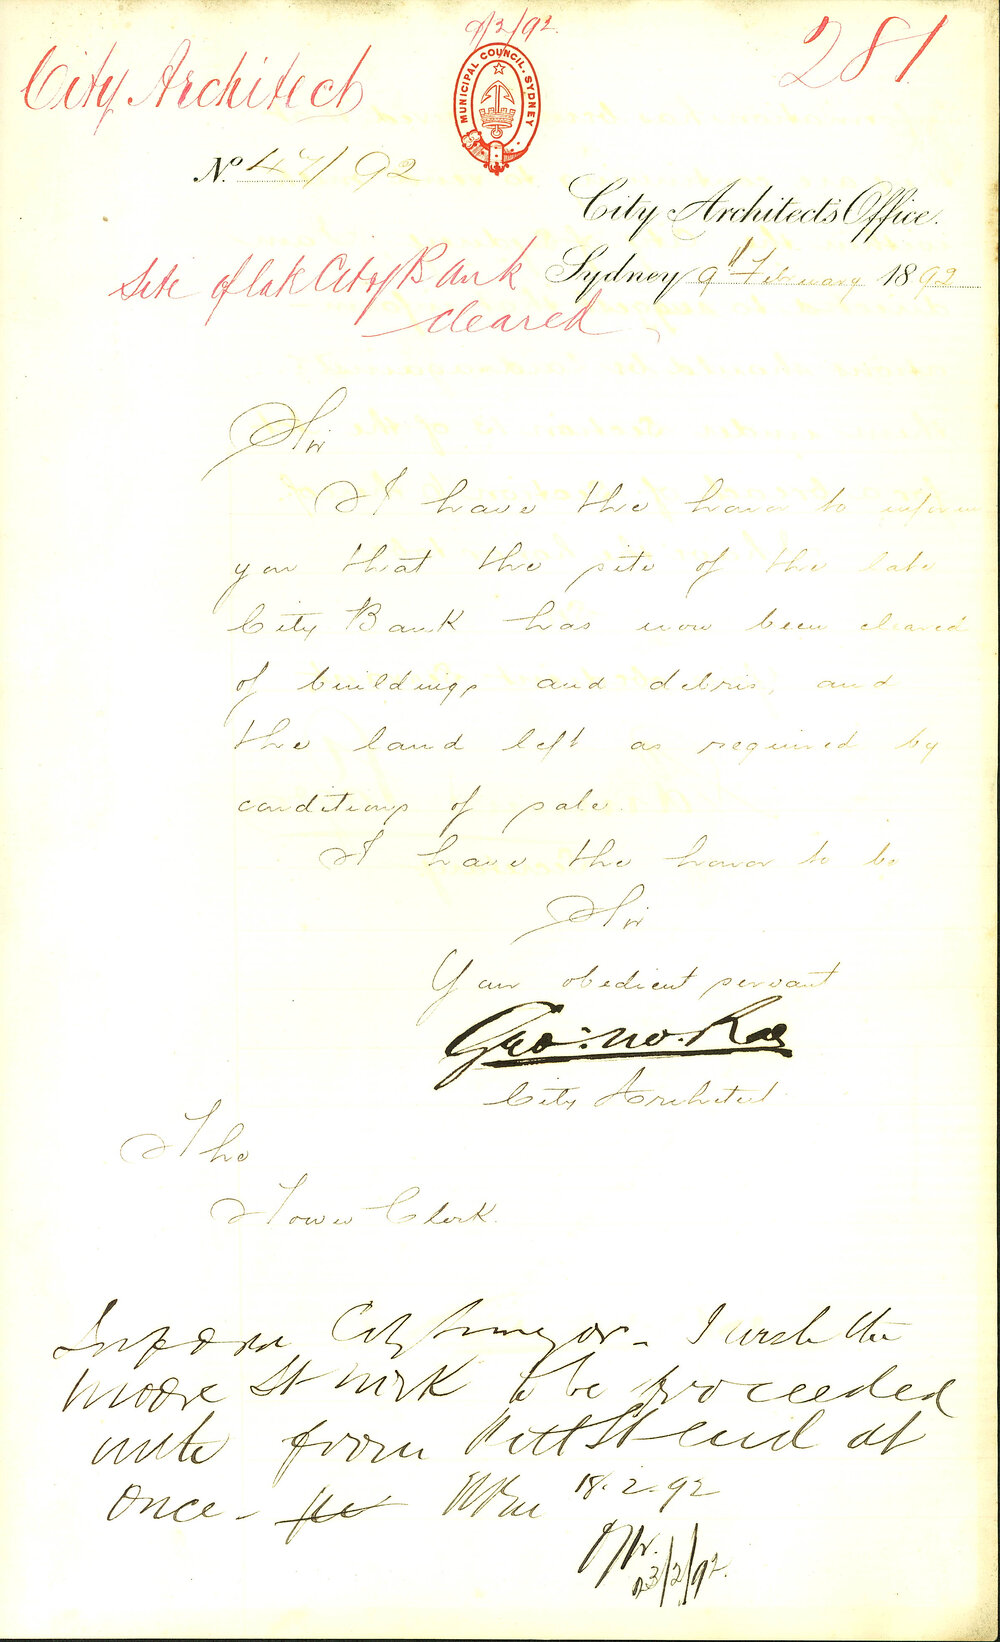 9/2/92.
281
City Architect
MUNICIPAL COUNCIL, SYDNEY
No. 47/92
City Architect's Office.
Sydney 9th February 1892
Site of late City Bank
cleared
Sir
I have the honor to inform
you that the site of the late
City Bank has now been cleared
of buildings and debris, and
the land left as required by
conditions of sale.
I have the honor to be
Sir
Your obedient servant
Geo: Mc. Rae
City Architect
The
Town Clerk.
Inform City Surveyor - I wish the
Moore St work to be proceeded
with from Pitt St end at
once -
18.2.92
23/2/92.